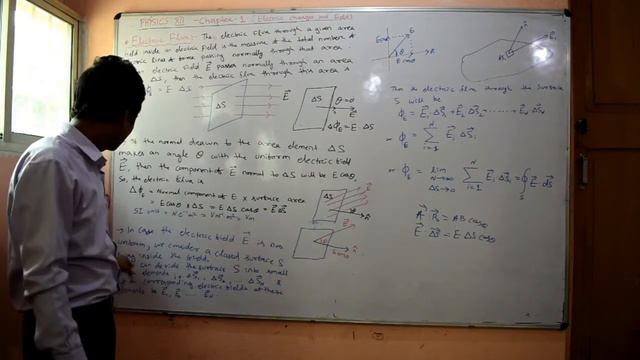 PHYSICS XII - Chapter-1 (Electric charges and Field)
* Electric Flux:- The electric flux through a given area
held inside an electric field is the measure of the total number of
electric lines of force passing normally through that area.
electric field E⃗ passes normally through an area
ΔS, then the electric flux through this area is
= E ΔS
ΔS
E⃗
ΔS
θ=0
Δϕ_E = E ΔS
If the normal drawn to the area element ΔS
makes an angle θ with the uniform electric field
E⃗, then the component of E⃗ normal to ΔS will be E cosθ.
So, the electric flux is
Δϕ_E = Normal component of E × surface area
= E cosθ × ΔS = E ΔS cosθ = E⃗.ΔS⃗
SI unit =
ΔS
→ In case the electric field E⃗ is non
uniform, we consider a closed surface S
inside the field.
can divide the surface S into small
elements ΔS⃗₁, ΔS⃗₂, ... ΔS⃗_N &
corresponding electric fields at these
E⃗₁, E⃗₂ ... E⃗_N
E cosθ
θ
Then the electric flux through the surface
S will be
ϕ_E = E⃗₁.ΔS⃗₁ + E⃗₂.ΔS⃗₂ ........ + E⃗_N.ΔS⃗_N
ϕ_E = Σ_{i=1}^{N} E⃗_i.ΔS⃗_i
ϕ_E = lim_{N→∞, ΔS→0} Σ_{i=1}^{N} E⃗_i.ΔS⃗_i = ∮_S E⃗.dS⃗
A⃗.B⃗ = AB cosθ
E⃗.ΔS⃗ = E ΔS cosθ